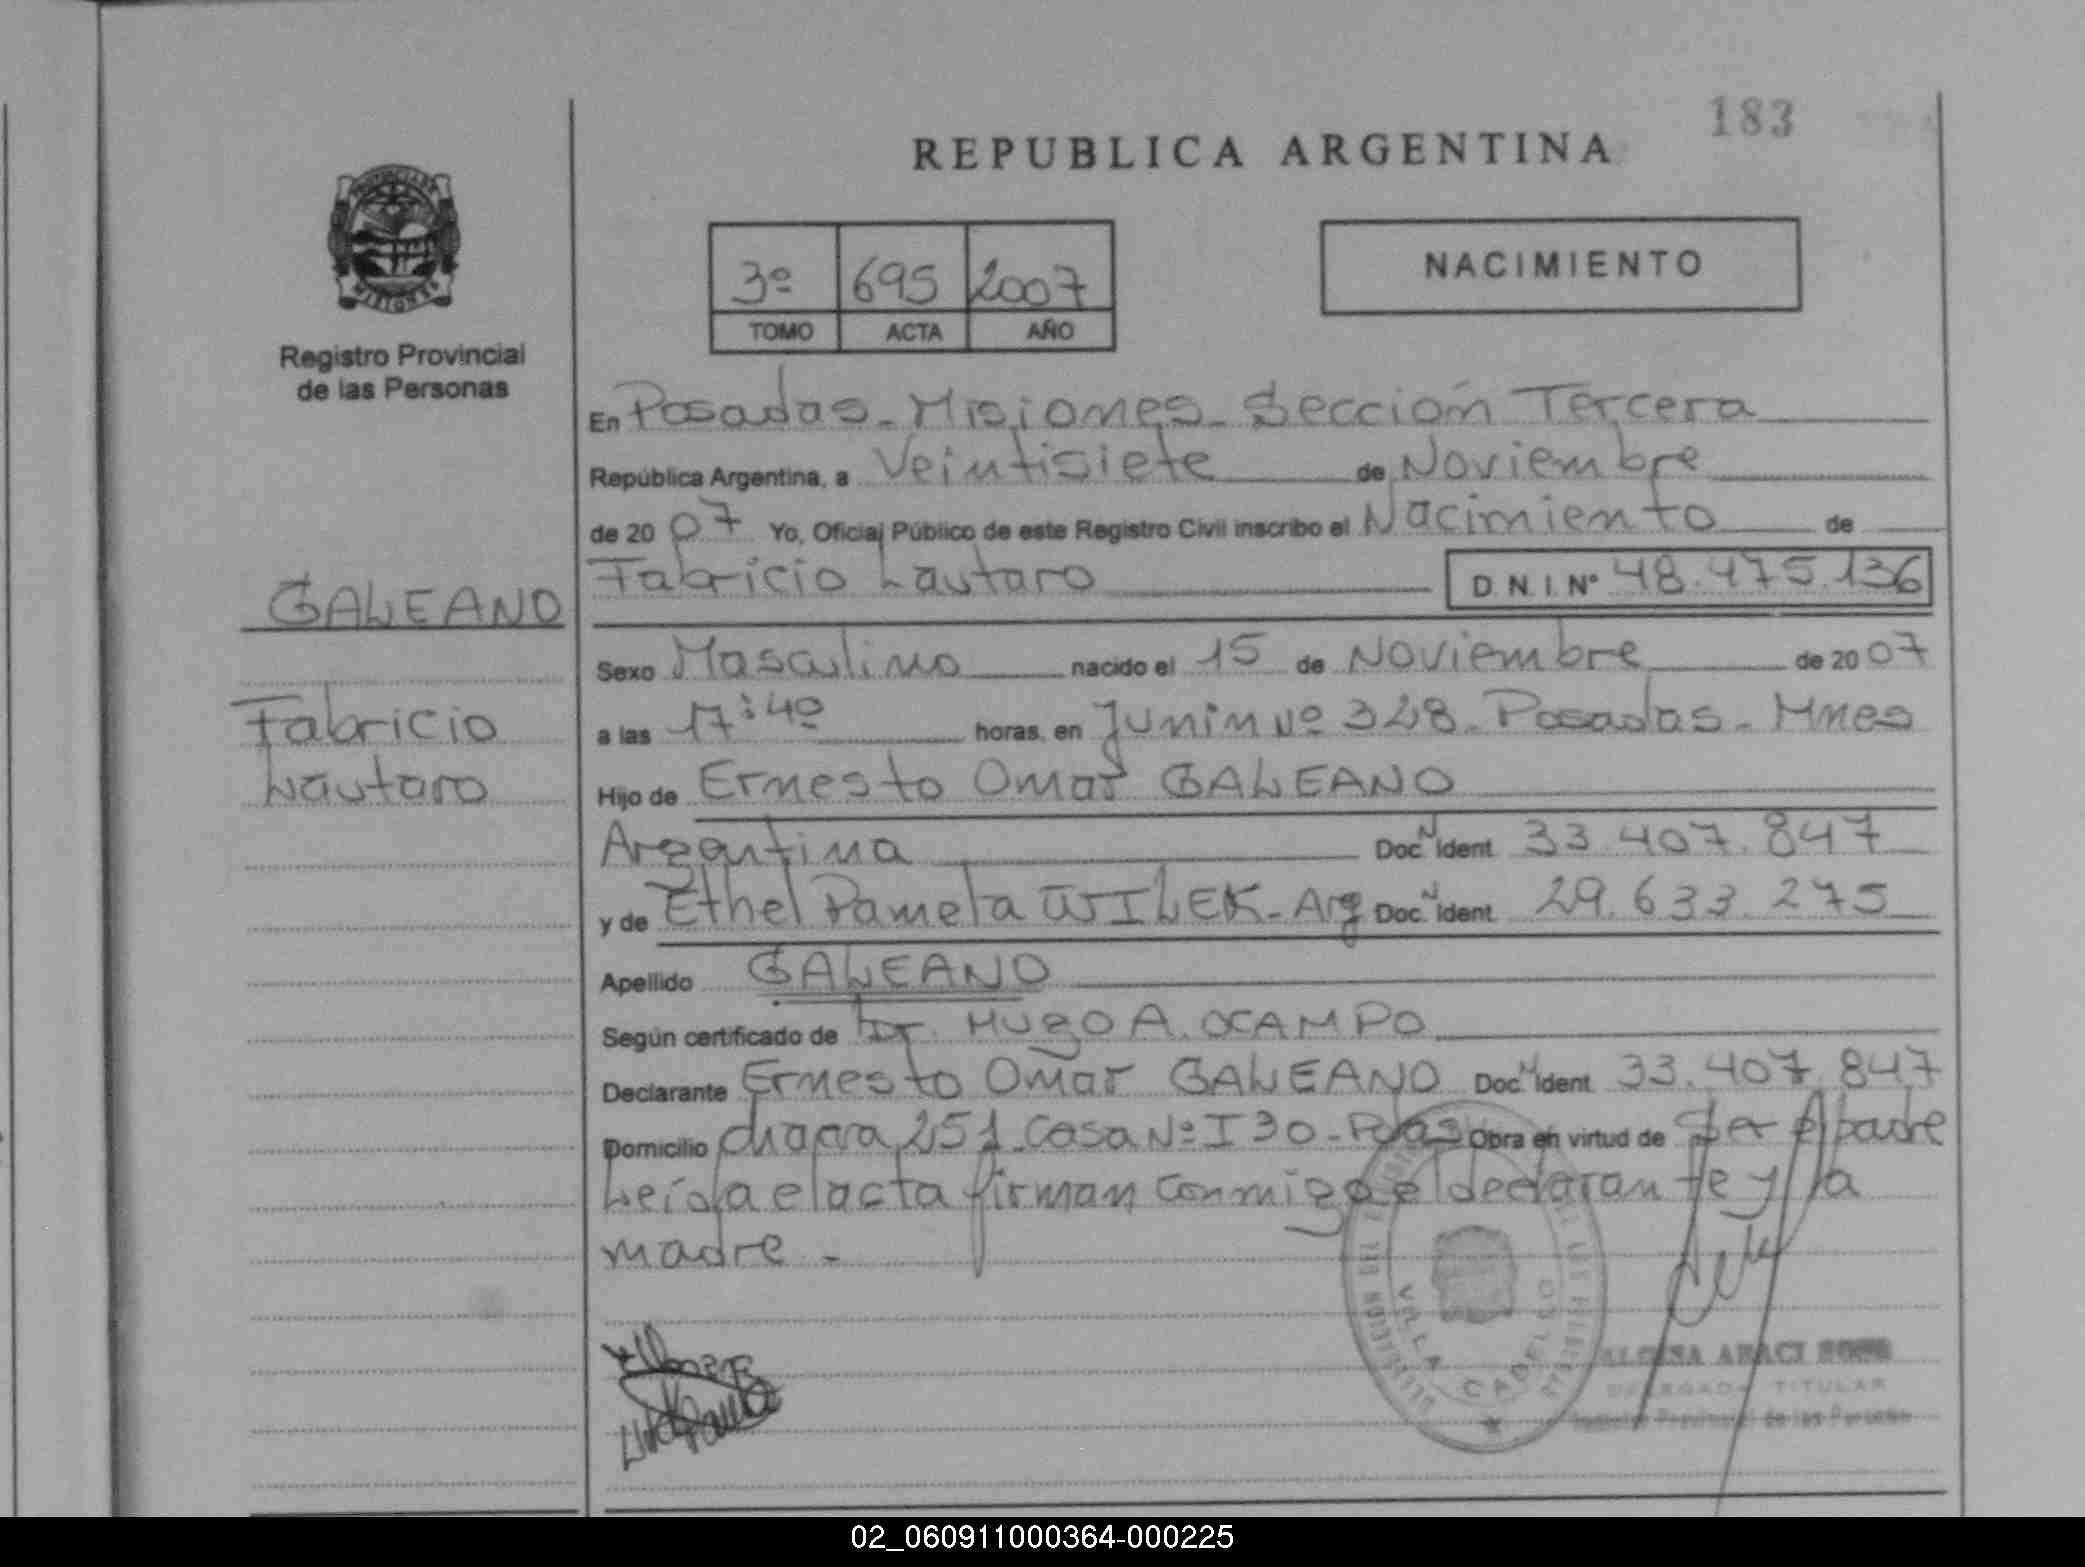 183
REPUBLICA ARGENTINA
PROVINCIA DE
MISIONES
Registro Provincial
de las Personas
3º 695 2007
TOMO ACTA AÑO
NACIMIENTO
En Posadas - Misiones - Sección Tercera
República Argentina, a Veintisiete de Noviembre
de 20 07 Yo, Oficial Público de este Registro Civil inscribo el Nacimiento de
GALEANO
Fabricio Lautaro D.N.I. Nº 48.475.136
Sexo Masculino nacido el 15 de Noviembre de 20 07
Fabricio
Lautaro
a las 17:40 horas, en Junin Nº 328 - Posadas - Mnes
Hijo de Ernesto Omar GALEANO
Argentina Doc. N Ident. 33.407.847
y de Ethel Pamela WILEK - Arg Doc. N Ident. 29.633.275
Apellido GALEANO
Según certificado de Dr. Hugo A. OCAMPO
Declarante Ernesto Omar GALEANO Doc. N Ident. 33.407.847
Domicilio chacra 251 - Casa Nº I 30 - Pdas Obra en virtud de Ser el padre
Leída el acta firman conmigo el declarante y la
madre -
VILLA CABELLO
ARACI
DELEGADA TITULAR
Provincial de las Personas
02_060911000364-000225